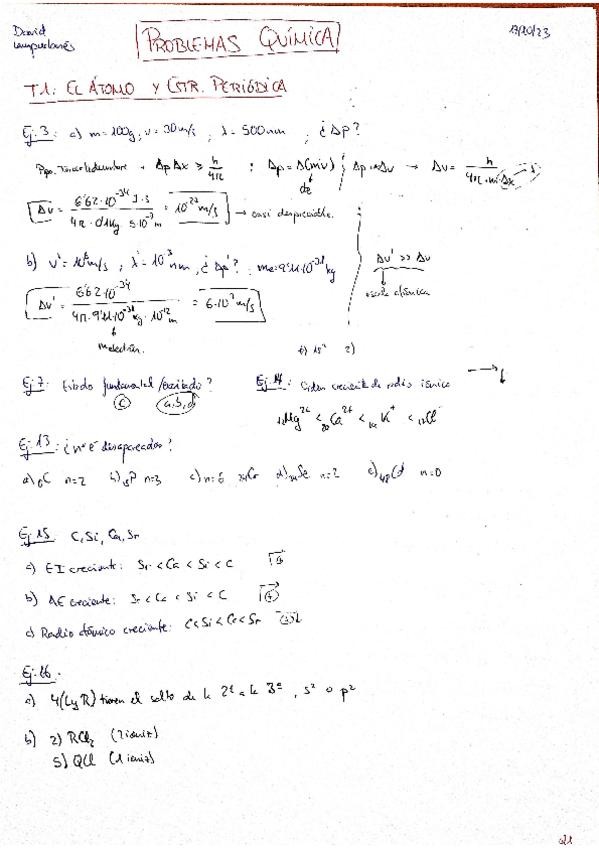 David
PROBLEMAS QUÍMICA
17/10/23
T1: EL ÁTOMO Y ESTR. PERIÓDICA
Ej. 3: a) m = 100g, v = 30m/s, λ = 500nm, ¿Δp?
Δp Δx ≥ h/4π ; Δp = Δ(mv) Δp = m Δv → Δv = h/4π·m·Δx
Δv = 6'62·10^-34 J·s / 4π · 0'1kg · 5·10^-7 m = 10^-27 m/s → casi despreciable.
b) , ¿Δp'? me = 9'11·10^-31 kg
Δv' >> Δv
escala atómica
Δv' = 6'62·10^-34 / 4π·9'11·10^-31 kg·10^-12 m = 6·10^7 m/s
m electrón.
Ej. 7: Estado fundamental/excitado?
c a, b, d
Ej. 14: Orden creciente de radio iónico
12Mg^2+ < 20Ca^2+ < 19K^+ < 17Cl^-
Ej 13: ¿nº e^- desapareados?
a) 6C n=2 b) 15P n=3 c) n=6 24Cr d) 34Se n=2 e) 48Cd n=0
Ej 15 C, Si, Ca, Sr
a) EI creciente: Sr < Ca < Si < C
b) AE creciente: Sr < Ca < Si < C
c) Radio atómico creciente: C < Si < Ca < Sr
Ej. 16.
a) 4(L y R) tienen el salto de la 2ª a la 3ª, s² o p²
b) 2) RCl₂ (2 ioniz)
5) QCl (1 ioniz)